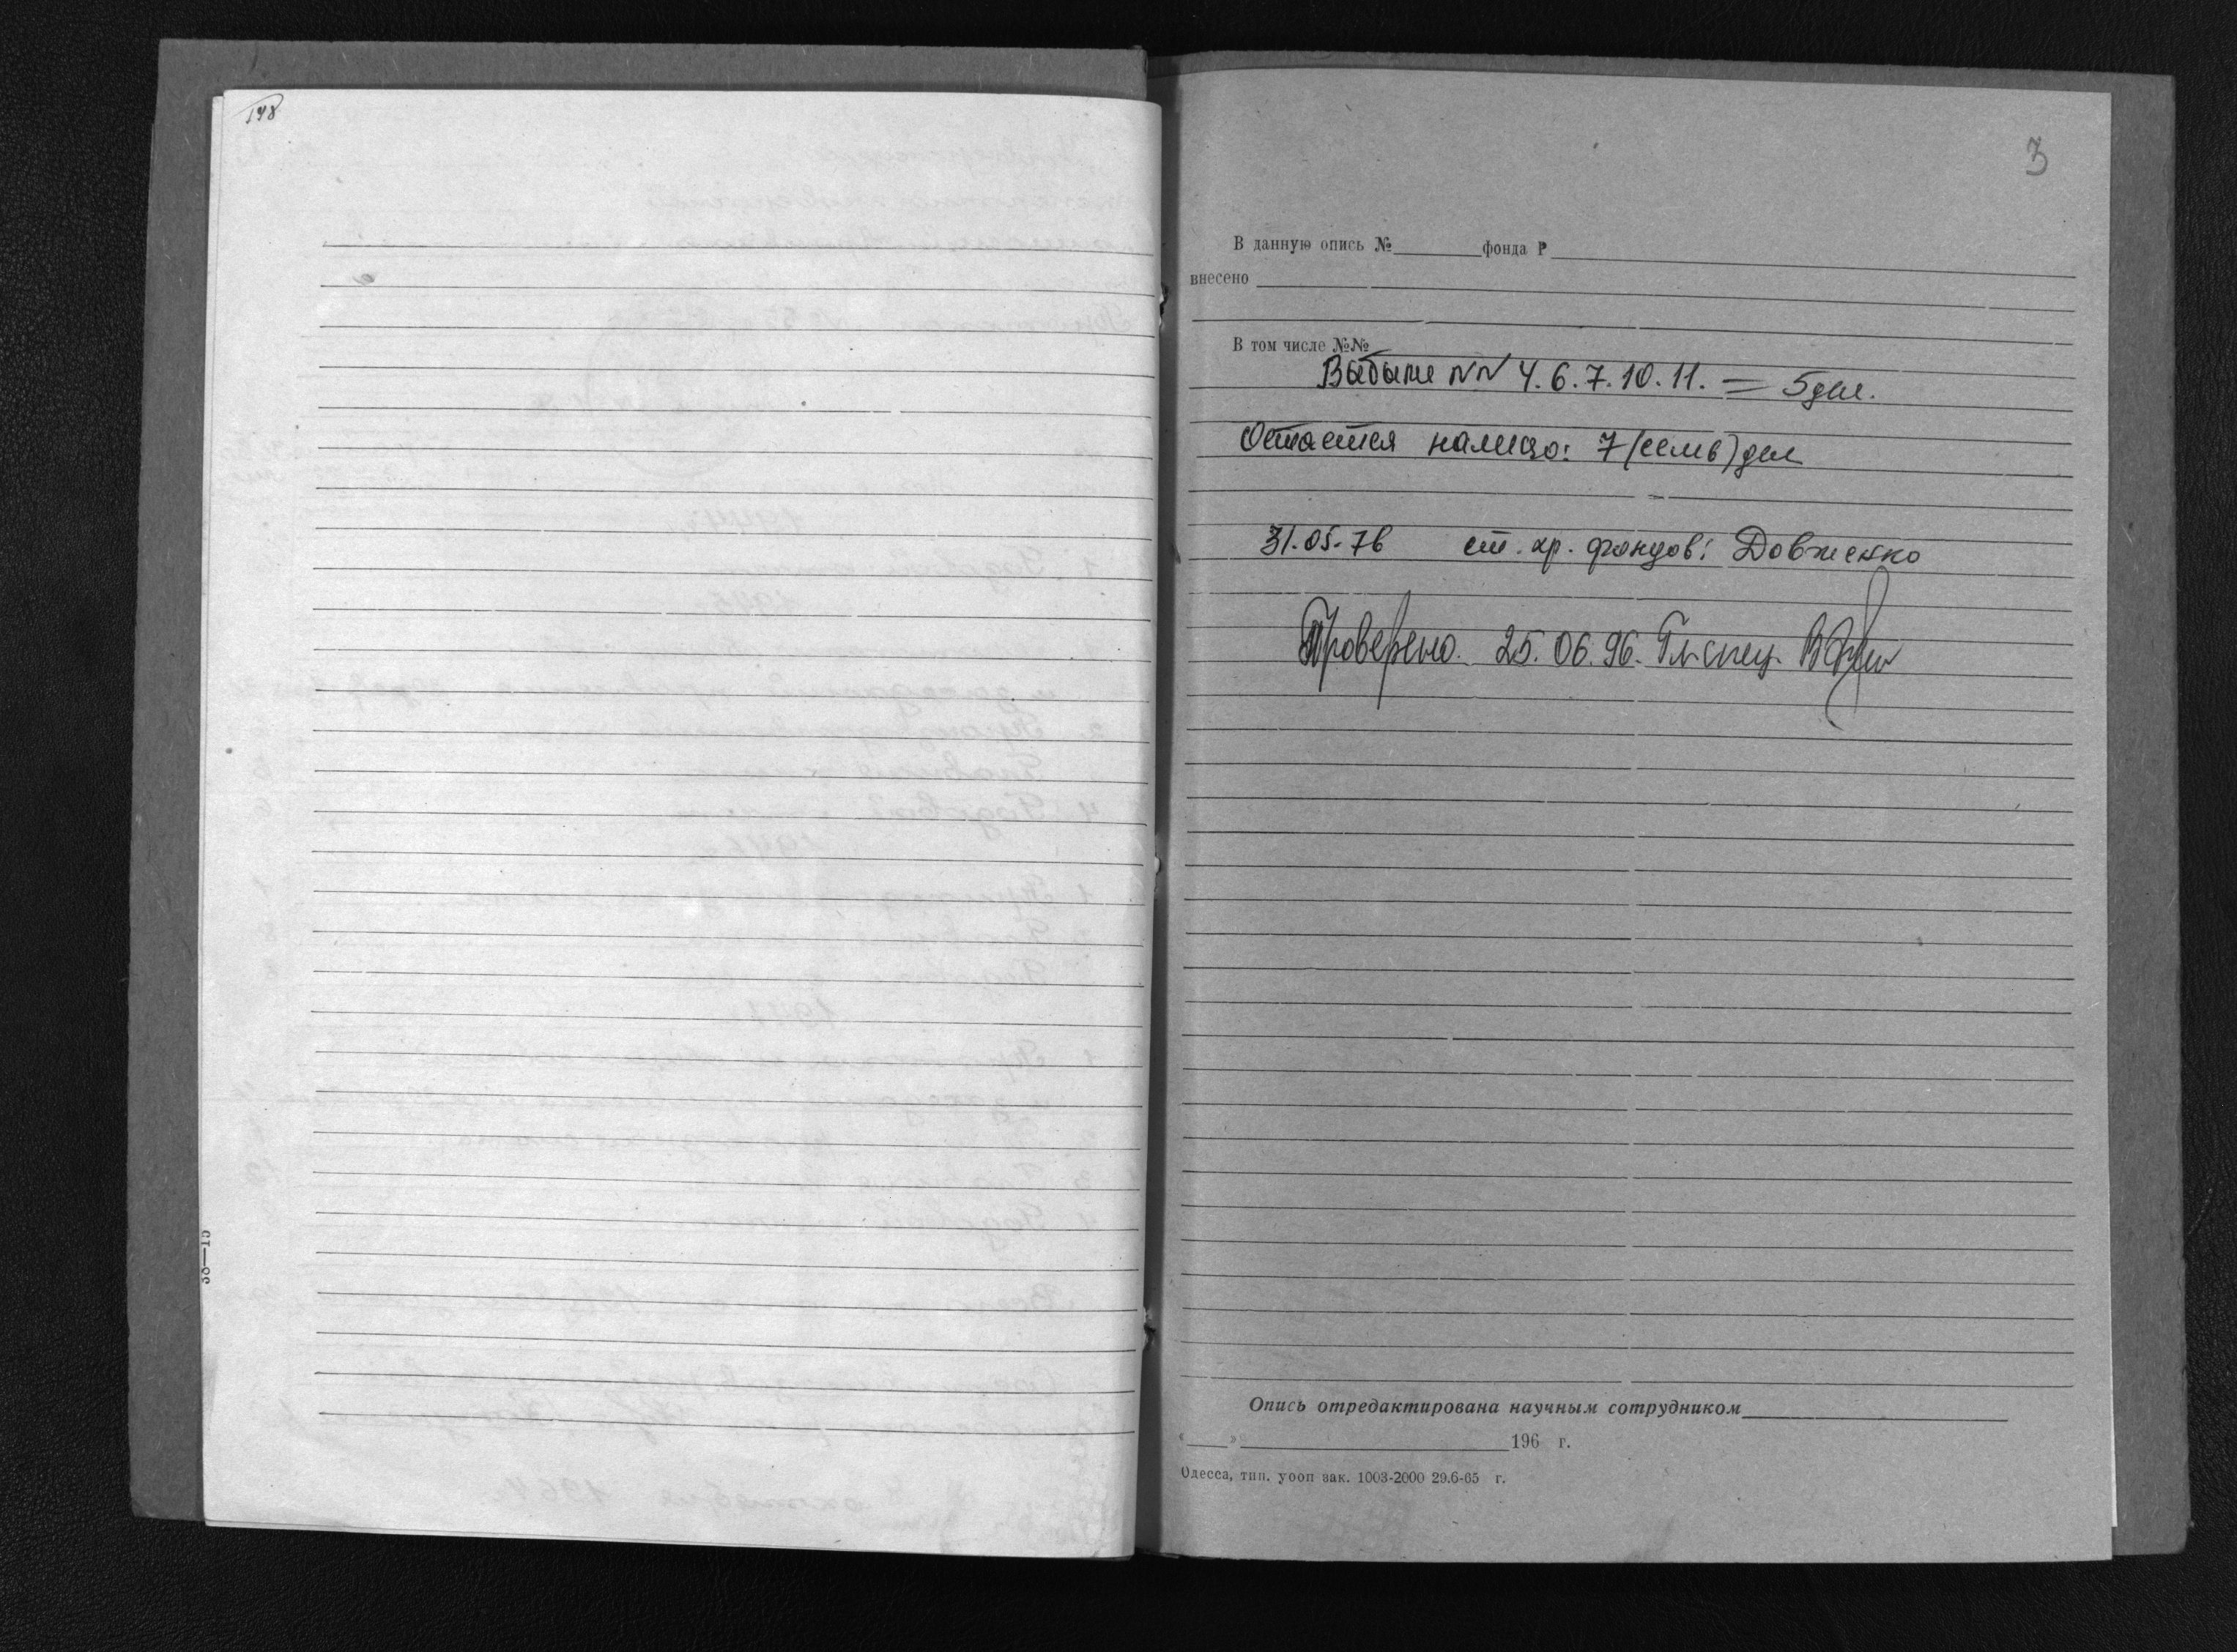 148
38—15
3
В данную опись №________фонда Р________
внесено
В том числе №№
Выбыли NN 4.6.7.10.11. = 5 дел.
Остается налицо: 7 (семь) дел
31.05.76 ст. хр. фондов: Довженко
Проверено. 25.06.96. Гл. спец.
Опись отредактирована научным сотрудником
«____»________196 г.
Одесса, тип. уооп зак. 1003-2000 29.6-65 г.